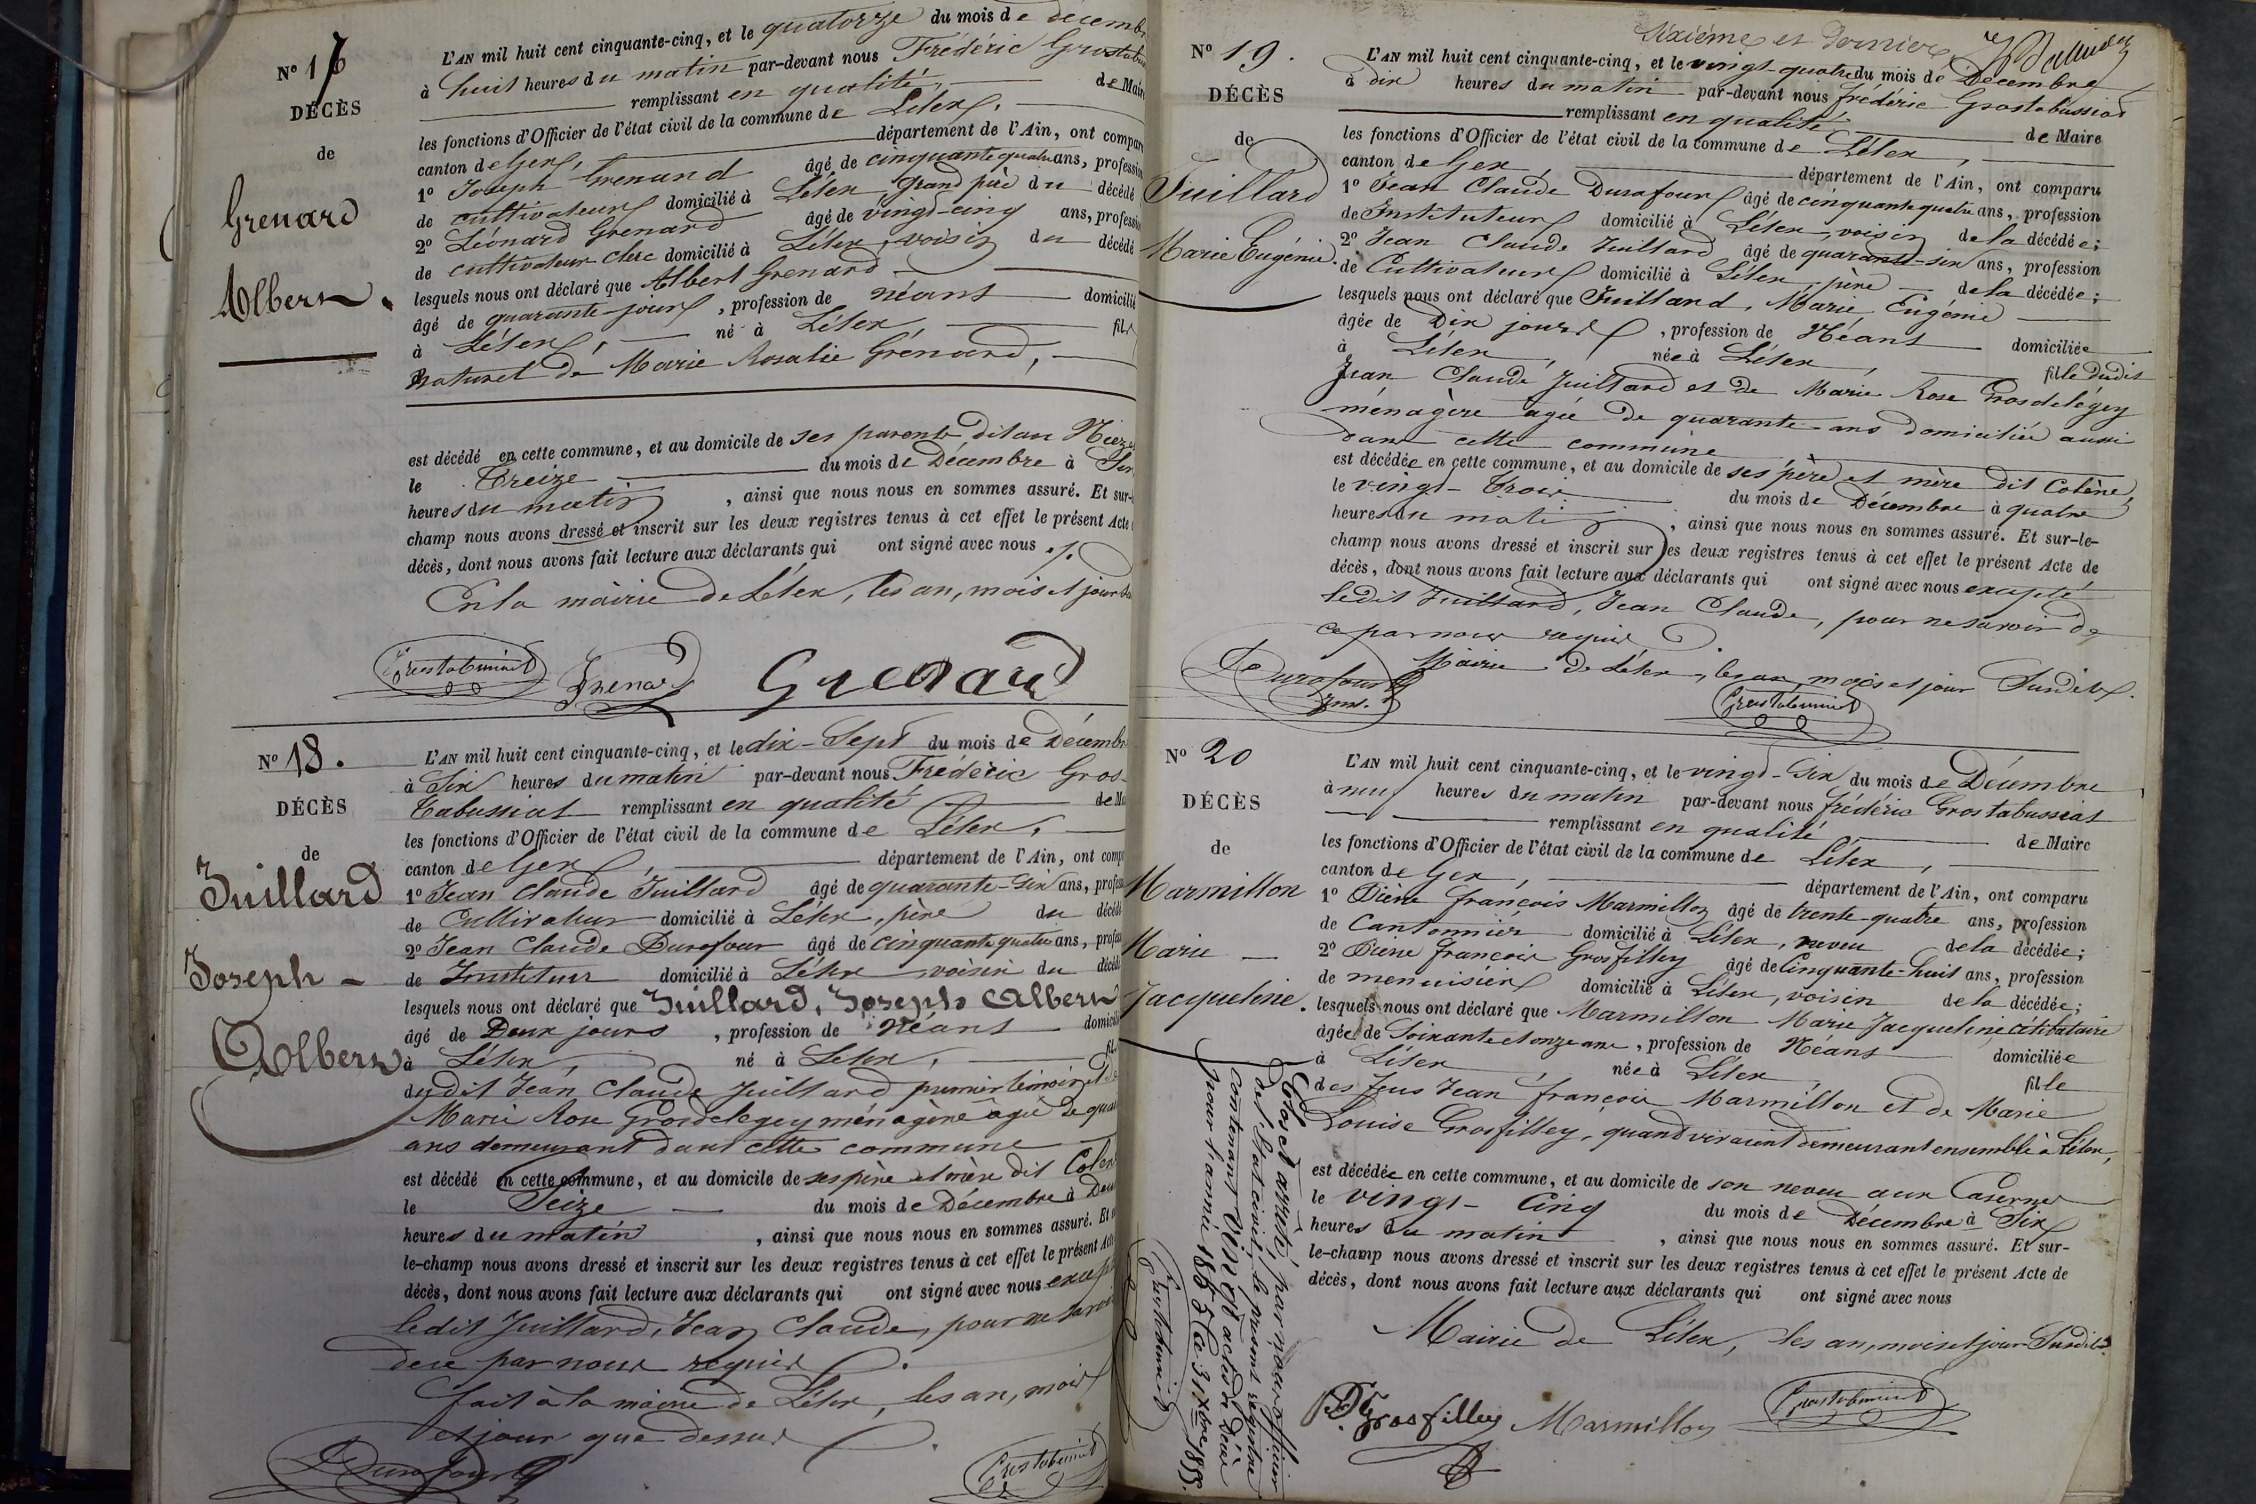 N° 17
DÉCÈS
de
Grenard
Albert.
L'AN mil huit cent cinquante-cinq, et le quatorze du mois de décembre
à huit heures du matin par-devant nous Frédéric Grostabus
remplissant en qualité de Maire
les fonctions d'Officier de l'état civil de la commune de Lélex,
canton de Gex, département de l'Ain, ont comparu
1° Joseph Grenard âgé de cinquante quatre ans, profession
de cultivateur domicilié à Lélex grand père du décédé
2° Léonard Grenard âgé de vingt-cinq ans, profession
de cultivateur clerc domicilié à Lélex, voisin du décédé
lesquels nous ont déclaré que Albert Grenard
âgé de quarante-jours, profession de néant domicilié
à Lélex, né à Lélex, fils
naturel de Marie Rosalie Grénard,
est décédé en cette commune, et au domicile de ses parents dit au
le Treize du mois de Décembre à Six
heures du matin, ainsi que nous nous en sommes assuré. Et sur-le-
champ nous avons dressé et inscrit sur les deux registres tenus à cet effet le présent Acte
décès, dont nous avons fait lecture aux déclarants qui ont signé avec nous ./.
En la mairie de Lélex, les an, mois et jour
Grostabussiat Grenard Grenard
N° 18.
DÉCÈS
de
Juillard
Joseph -
Albert
L'AN mil huit cent cinquante-cinq, et le dix-Sept du mois de Décembre
à Six heures du matin par-devant nous Frédéric Gros-
tabussiat remplissant en qualité de Ma
les fonctions d'Officier de l'état civil de la commune de Lélex,
canton de Gex, département de l'Ain, ont comp
1° Jean Claude Juillard âgé de quarante-Six ans, profess
de Cultivateur domicilié à Lélex, père du décédé
2° Jean Claude Durafour âgé de cinquante quatre ans, profess
de Instituteur domicilié à Lélex voisin du décédé
lesquels nous ont déclaré que Juillard, Joseph Albert
âgé de Deux jours, profession de Néant domicilié
à Lélex, né à Lelex, fil
dudit Jean Claude Juillard premier témoin et de
Marie Rose Grosdelegey ménagère âgée de quar
ans demeurant dans cette commune
est décédé en cette commune, et au domicile de ses père et mère dit Coten
le Seize du mois de Décembre à Deux
heures du matin, ainsi que nous nous en sommes assuré. Et sur
le-champ nous avons dressé et inscrit sur les deux registres tenus à cet effet le présent Acte
décès, dont nous avons fait lecture aux déclarants qui ont signé avec nous except
ledit Juillard, Jean Claude, pour ne savoir
de ce par nous requis.
fait à la mairie de Lélex, les an, mois
et jour que dessus.
Durafour Grostabussiat
Sixième et dernier
N° 19.
DÉCÈS
de
Juillard
Marie Eugénie.
L'AN mil huit cent cinquante-cinq, et le vingt-quatre du mois de Décembre
à dix heures du matin par-devant nous frédéric Grostabussiat
remplissant en qualité de Maire
les fonctions d'Officier de l'état civil de la commune de Lélex,
canton de Gex, département de l'Ain, ont comparu
1° Jean Claude Durafour âgé de cinquante quatre ans, profession
de Instituteur domicilié à Lélex, voisin de la décédée;
2° Jean Claude Juillard âgé de quarante-six ans, profession
de Cultivateur domicilié à Lélex, père de la décédée;
lesquels nous ont déclaré que Juillard, Marie Eugénie
âgée de Dix jours, profession de Néant domiciliée
à Lélex, née à Lélex, fille dudit
Jean Claude Juillard et de Marie Rose Grosdelégey
ménagère agée de quarante ans domiciliée aussi
dans cette commune
est décédée en cette commune, et au domicile de ses père et mère dit Cotène,
le vingt-trois du mois de Décembre à quatre
heures du matin, ainsi que nous nous en sommes assuré. Et sur-le-
champ nous avons dressé et inscrit sur les deux registres tenus à cet effet le présent Acte de
décès, dont nous avons fait lecture aux déclarants qui ont signé avec nous excepté
ledit Juillard, Jean Claude, pour ne savoir de
ce par nous requis.
Mairie de Lélex, les an, mois et jour Susdits.
Durafour Grostabussiat
N° 20
DÉCÈS
de
Marmillon
Marie -
Jacqueline.
L'AN mil huit cent cinquante-cinq, et le vingt-Six du mois de Décembre
à neuf heures du matin par-devant nous frédéric Grostabussiat
remplissant en qualité de Maire
les fonctions d'Officier de l'état civil de la commune de Lélex,
canton de Gex, département de l'Ain, ont comparu
1° Pierre françois Marmillon âgé de trente-quatre ans, profession
de Cantonnier domicilié à Lélex, neveu de la décédée;
2° Pierre françois Grosfilley âgé de Cinquante-huit ans, profession
de menuisier domicilié à Lélex, voisin de la décédée;
lesquels nous ont déclaré que Marmillon Marie Jacqueline célibataire
âgée de Soixante et onze ans, profession de Néant domiciliée
à Lélex, née à Lélex fille
des feus Jean françois Marmillon et de Marie
Louise Grosfilley, quand vivaient demeurant ensemble à Lélex,
est décédée en cette commune, et au domicile de son neveu aux Casernes
le vingt-Cinq du mois de Décembre à Six
heures du matin, ainsi que nous nous en sommes assuré. Et sur-
le-champ nous avons dressé et inscrit sur les deux registres tenus à cet effet le présent Acte de
décès, dont nous avons fait lecture aux déclarants qui ont signé avec nous
Mairie de Lélex, les an, mois et jour Susdits.
Grosfilley Marmillon Grostabussiat
Clos et arrêté, par nous officier
de l'état civil, le présent registre
contenant Vingt actes de Décès
pour l'année 1855. Ce 31 Xbre 1855.
Grostabussiat